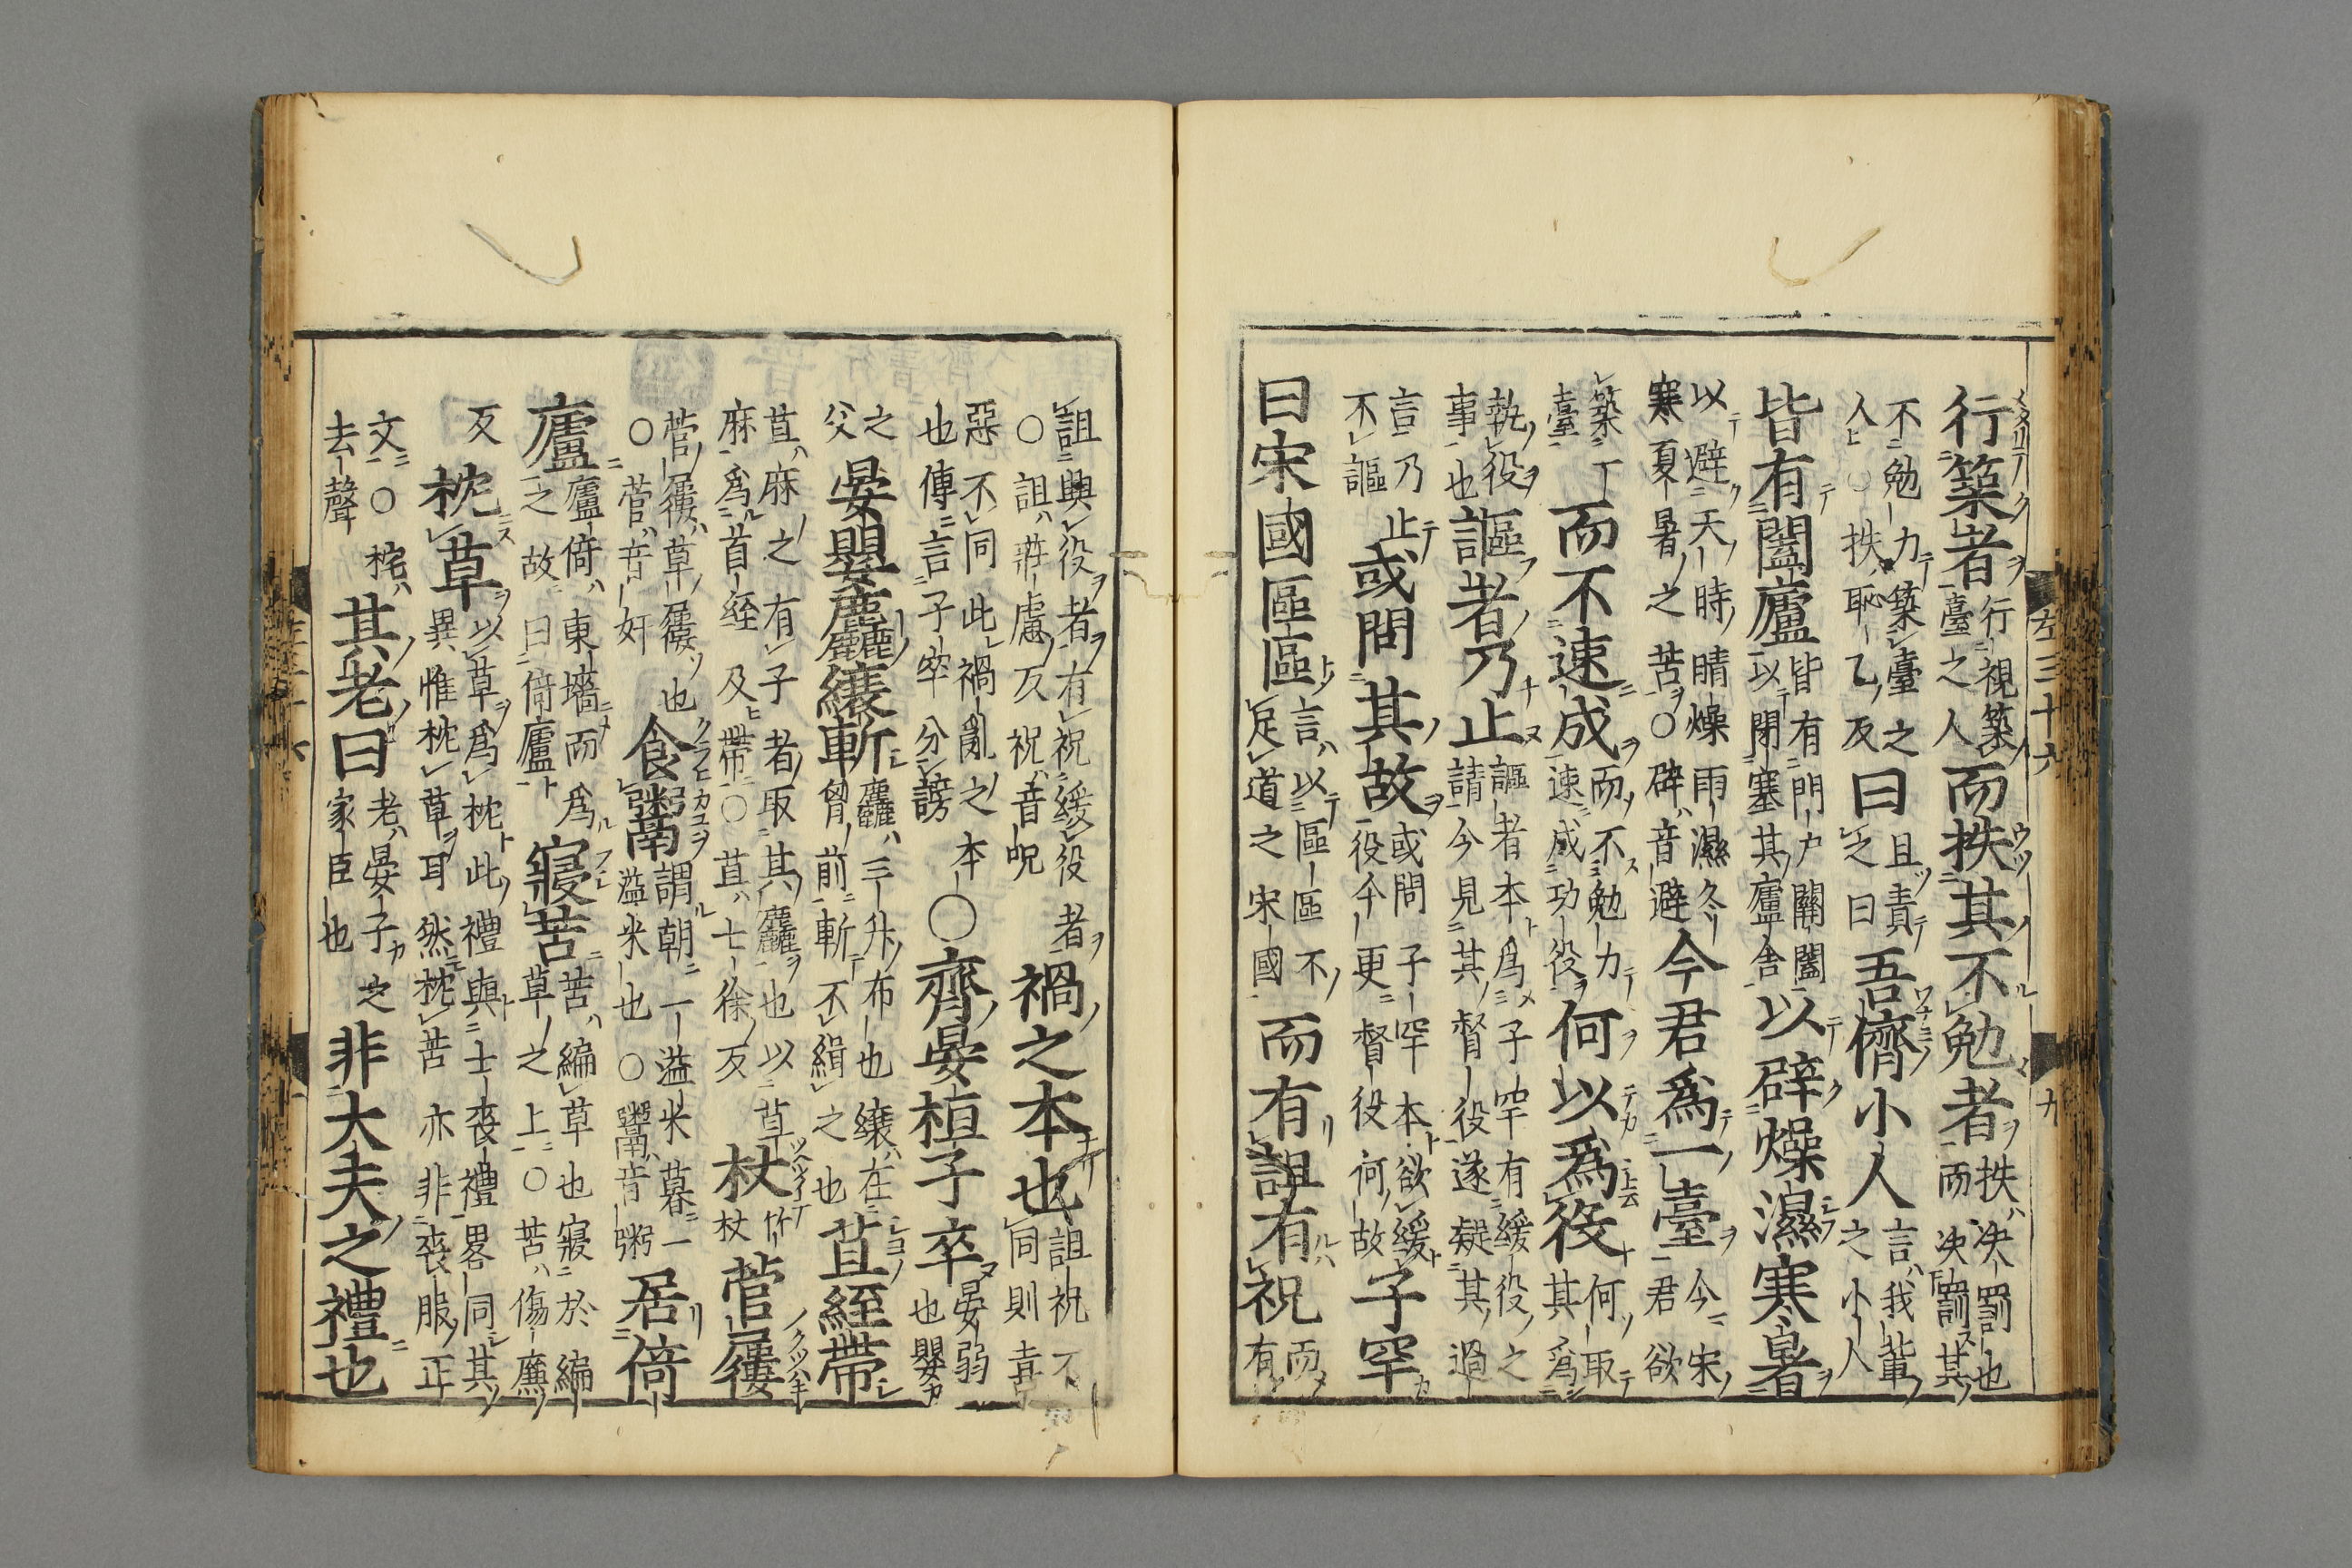 行築者行視築臺之人而抶其不勉者抶决罰也而决罰其
不勉力築臺之人○抶耻乙反曰且責之曰吾儕小人言我輩之小人
皆有闔廬皆有門戶關闔以閉塞其廬舍以辟燥濕寒暑
以避天時晴燥雨濕冬寒夏暑之苦○辟音避今君爲一臺今宋君欲
築一臺而不速成而不勉力速成功役何以爲役何取其爲
執役事也謳者乃止謳者本爲子罕有緩役之請今見其督役遂疑其過
言乃不謳止或問其故或問子罕本欲緩役今更督役何故子罕
曰宋國區區言以區區不足道之宋國而有詛有祝而有
詛與役者有祝緩役者○詛莊慮反祝音呪禍之本也詛祝不同則喜
惡不同此禍亂之本也傳言子罕分謗○齊晏桓子卒晏弱也嬰
之父晏嬰麤縗斬麤三升布也縗在胷前斬不緝之也苴絰帶
苴麻之有子者取其麤也以苴麻爲首絰及帶○苴七徐反杖竹杖菅屨
菅屨草屨也○菅音奸食鬻謂朝一溢米暮一溢米也○鬻音粥居倚
廬倚東墻而爲之故曰倚廬寢苫苫編草也寢於編草之上○苫傷廉
反枕草以草爲枕此禮與士喪禮畧同其異惟枕草耳然枕苫亦非喪服正
文○枕去聲其老曰老晏子之家臣也非大夫之禮也
左三十六
九